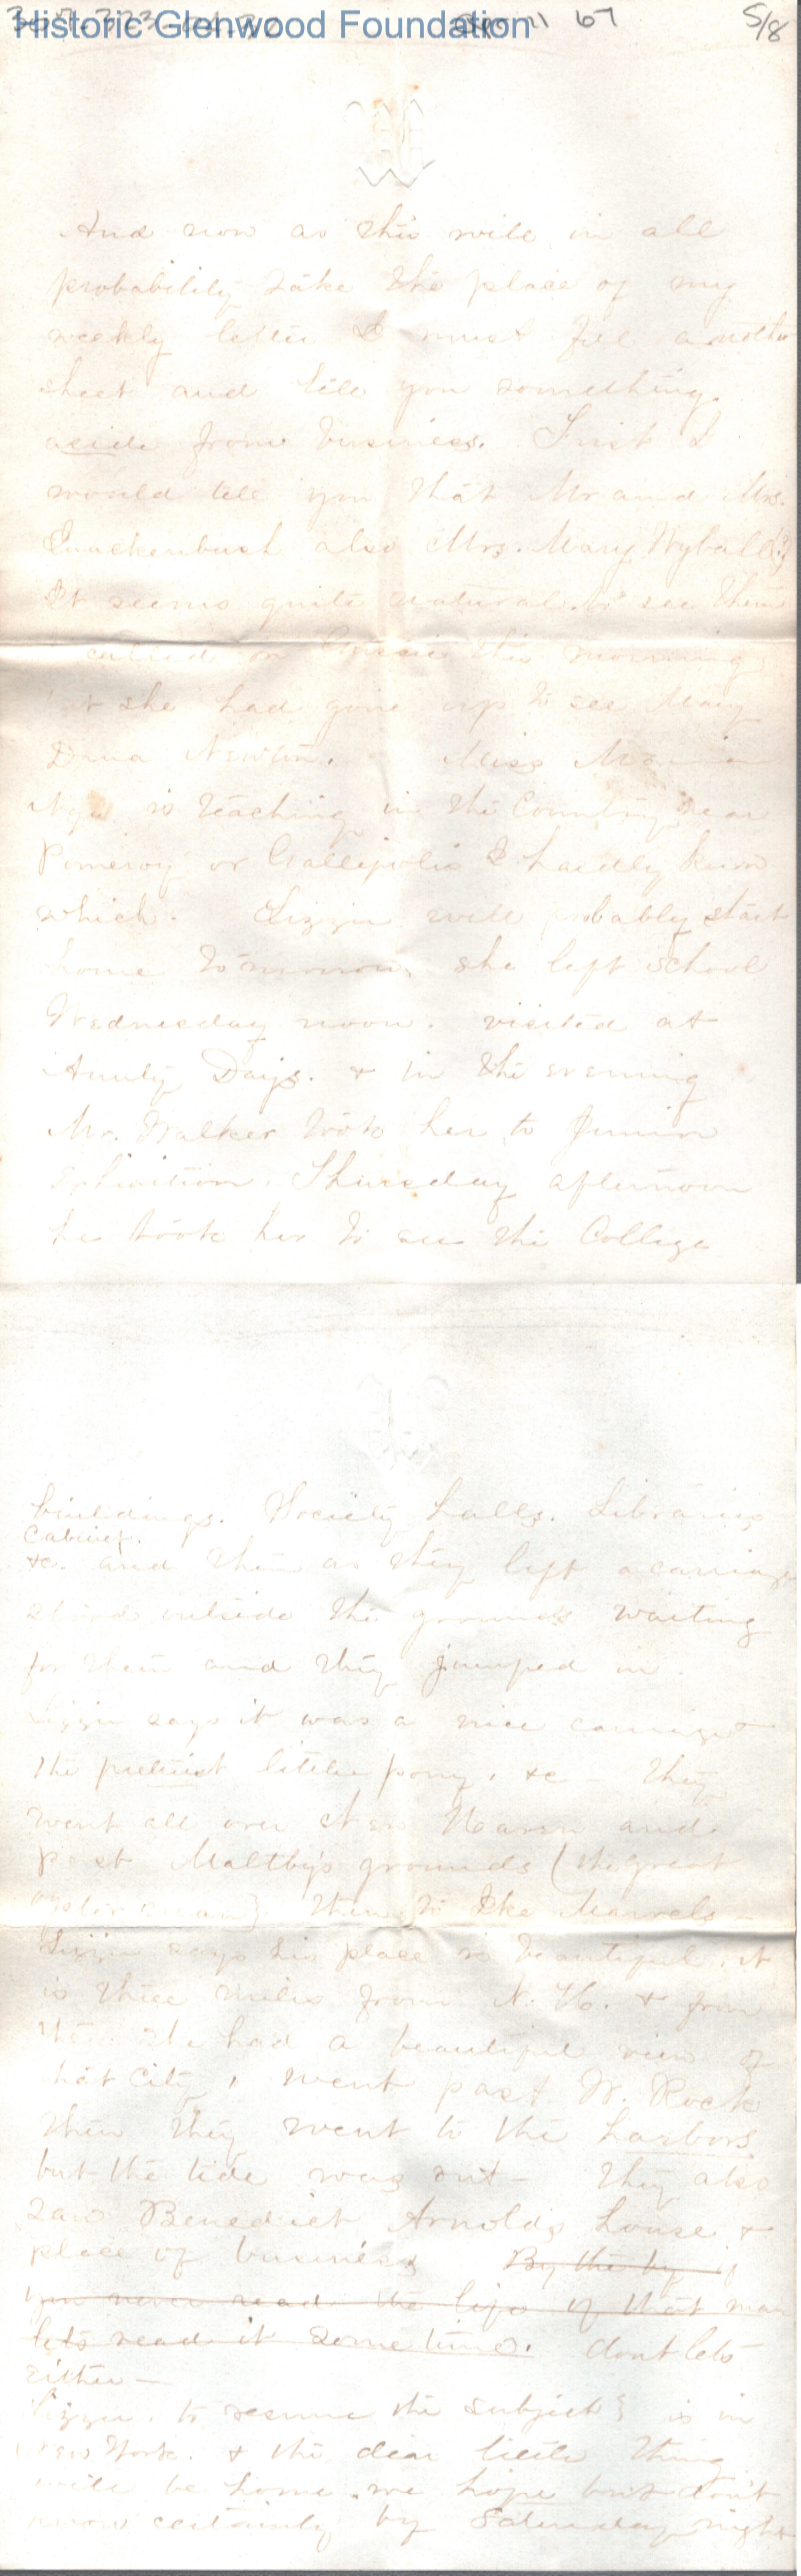 Historic Glenwood Foundation
67
5/8
And now as this will in all
probability take the place of my
weekly letter I must fill another
sheet and tell you something
aside from business. First I
would tell you that Mr and Mrs.
Quackenbush also Mrs. Mary
It seems quite natural to see them
I called on this morning
but she had gone up to see Mary
Dana Newton. Miss
Nye is teaching in the Country near
Pomeroy or Gallipolis I hardly know
which. Lizzie will probably start
home tomorrow, she left school
Wednesday noon. visited at
Aunty Days. & in the evening
Mr. Walker took her to Junior
Exhibition. Thursday afternoon
he took her to see the College
buildings. Society halls. Libraries
Cabinet.
&c. and then as they left a carriage
stood outside the grounds waiting
for them and they jumped in.
Lizzie says it was a nice carriage
the prettiest little pony, &c - They
went all over New Haven and
past Maltby's grounds (the great
oyster man) then to Ike Marvels -
Lizzie says his place is beautiful, it
is three miles from N. H. & from
there she had a beautiful view of
that City, went past W. Rock
then they went to the harbors
but the tide was out - They also
saw Benedict Arnolds house &
place of business By the by if
you never read the life of that man
lets read it some time. dont lets
either -
Lizzie, to resume the subject, is in
New York. & the dear little thing
will be home we hope but dont
know certainly by Saturday night